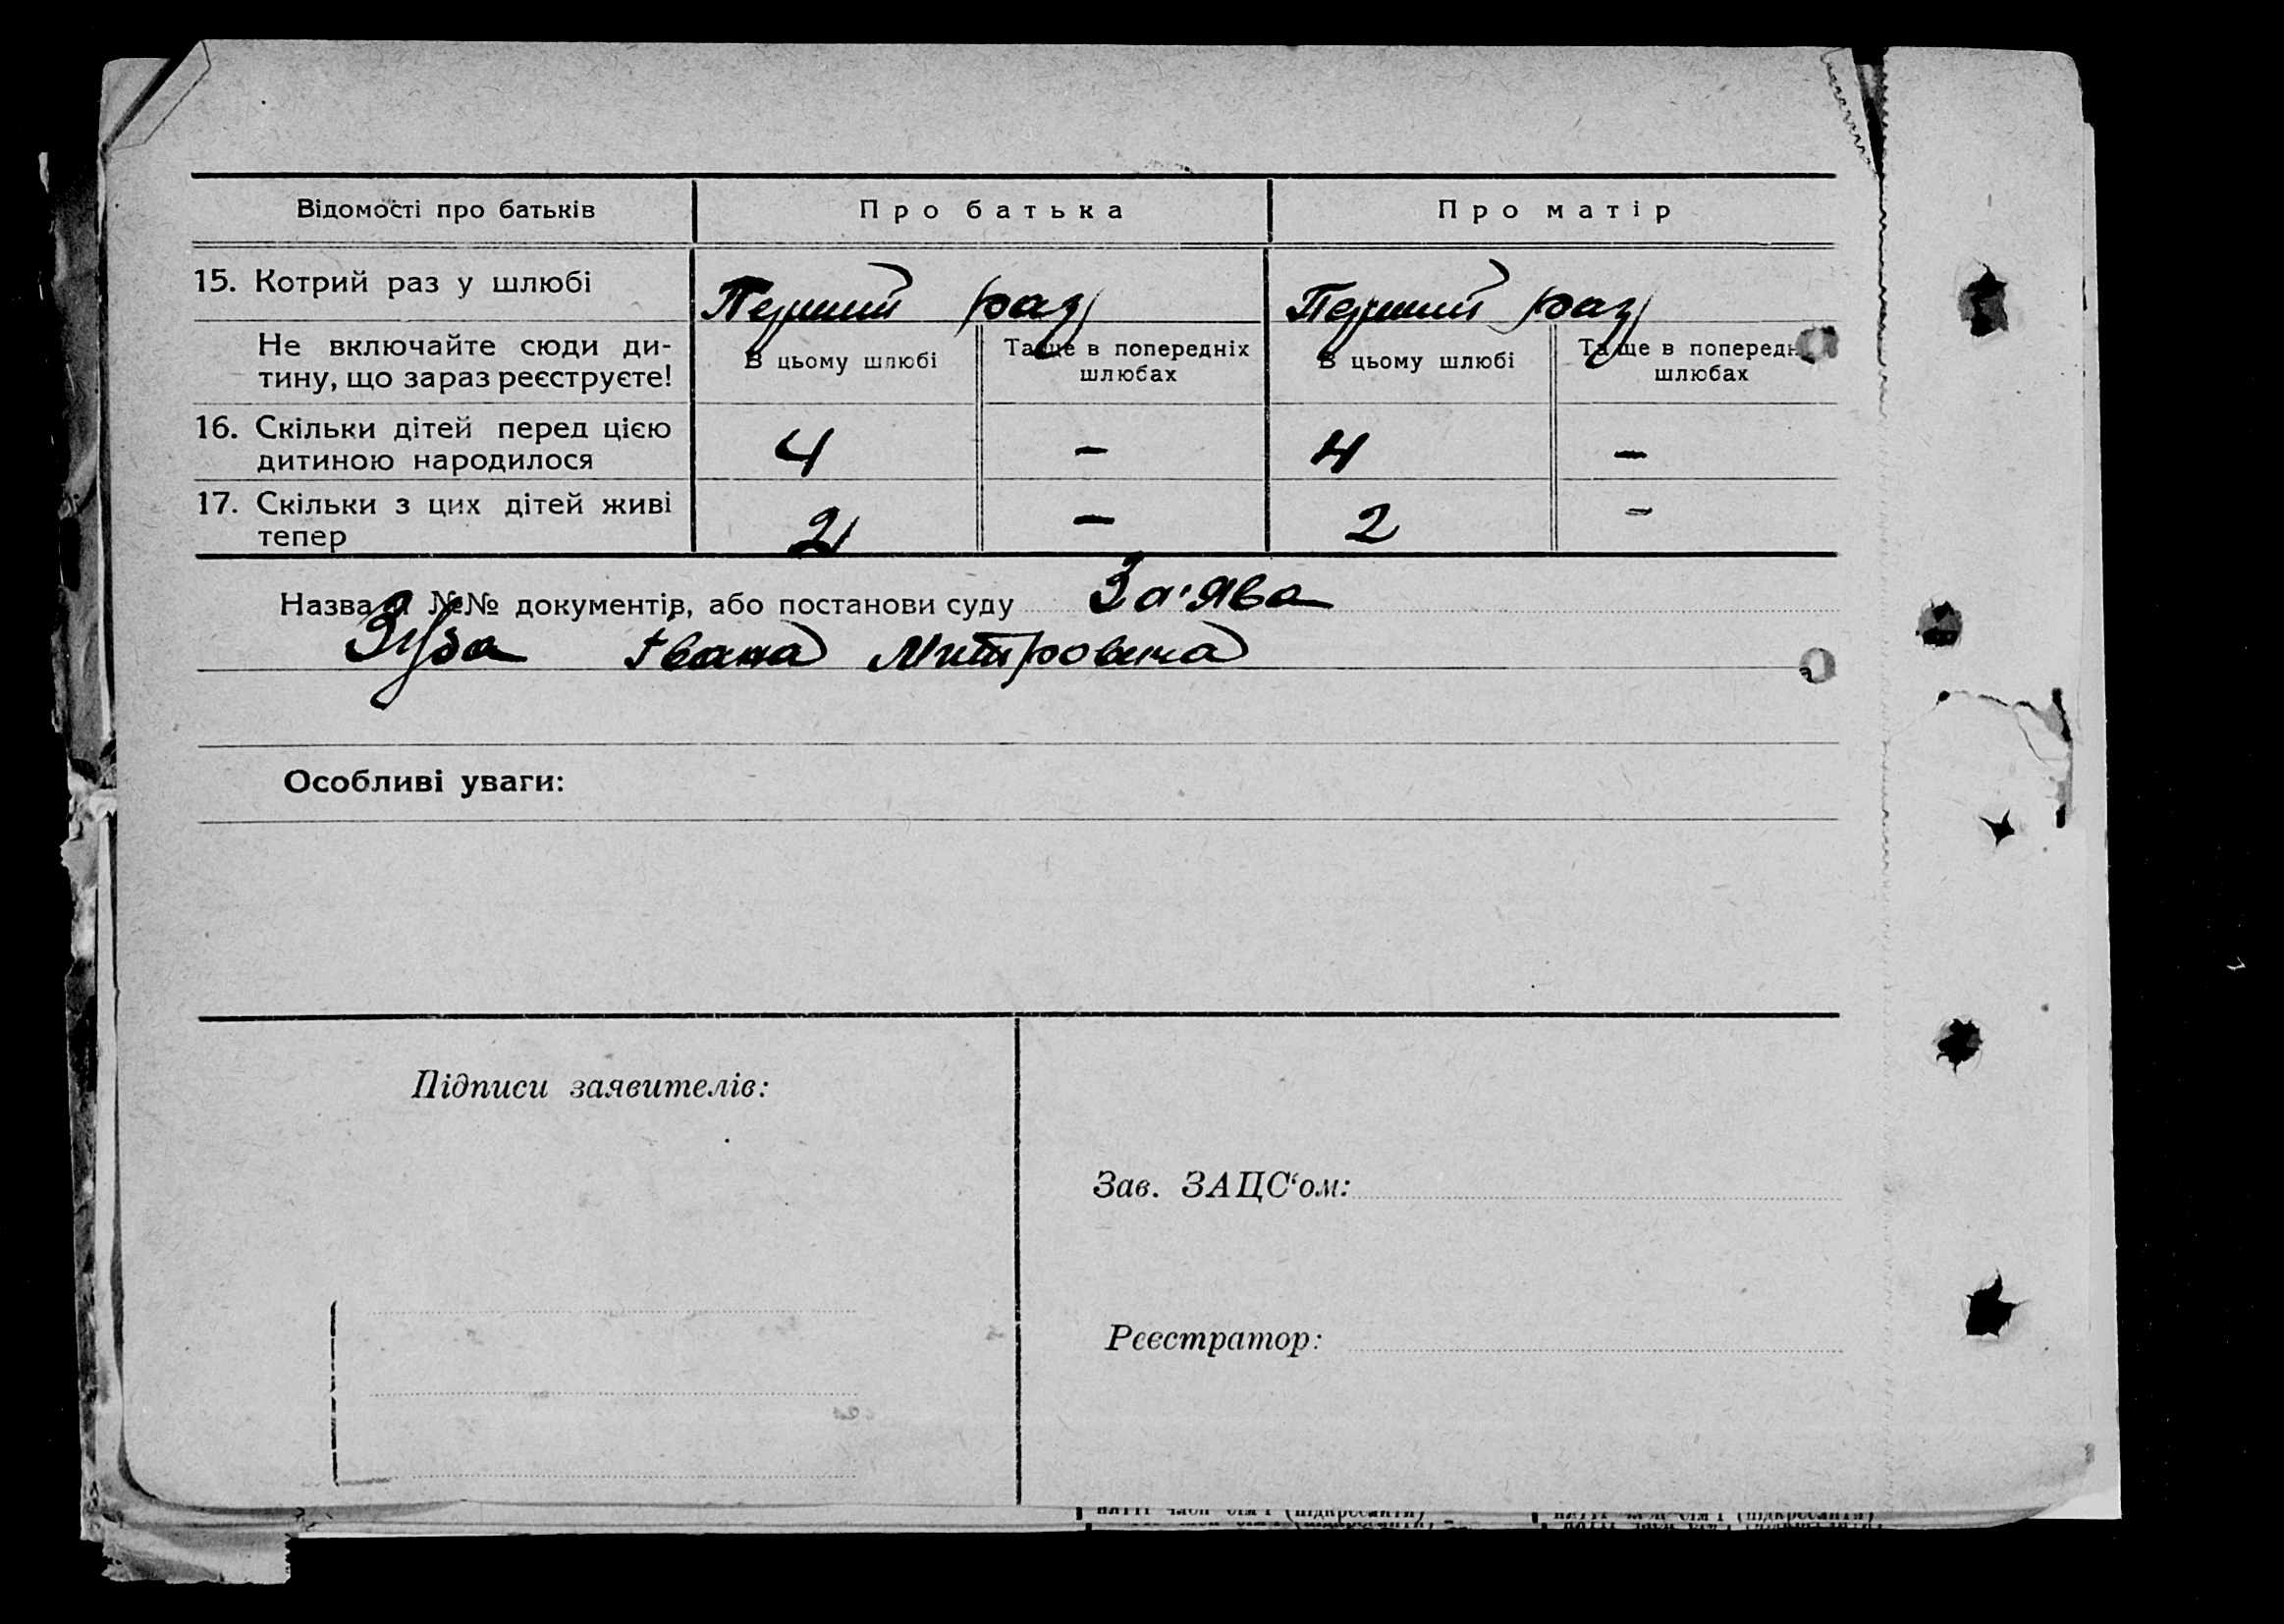 Відомості про батьків Про батька Про матір
15. Котрий раз у шлюбі Перший раз Перший раз
Не включайте сюди ди-
тину, що зараз реєструєте!
В цьому шлюбі Та ще в попередніх
шлюбах
В цьому шлюбі Та ще в попередн
шлюбах
16. Скільки дітей перед цією
дитиною народилося
4 – 4 –
17. Скільки з цих дітей живі
тепер
2 – 2 –
Назва й №№ документів, або постанови суду За'ява
Зуба Івана Митровича
Особливі уваги:
Підписи заявителів:
Зав. ЗАЦС‘ом:
Реєстратор: